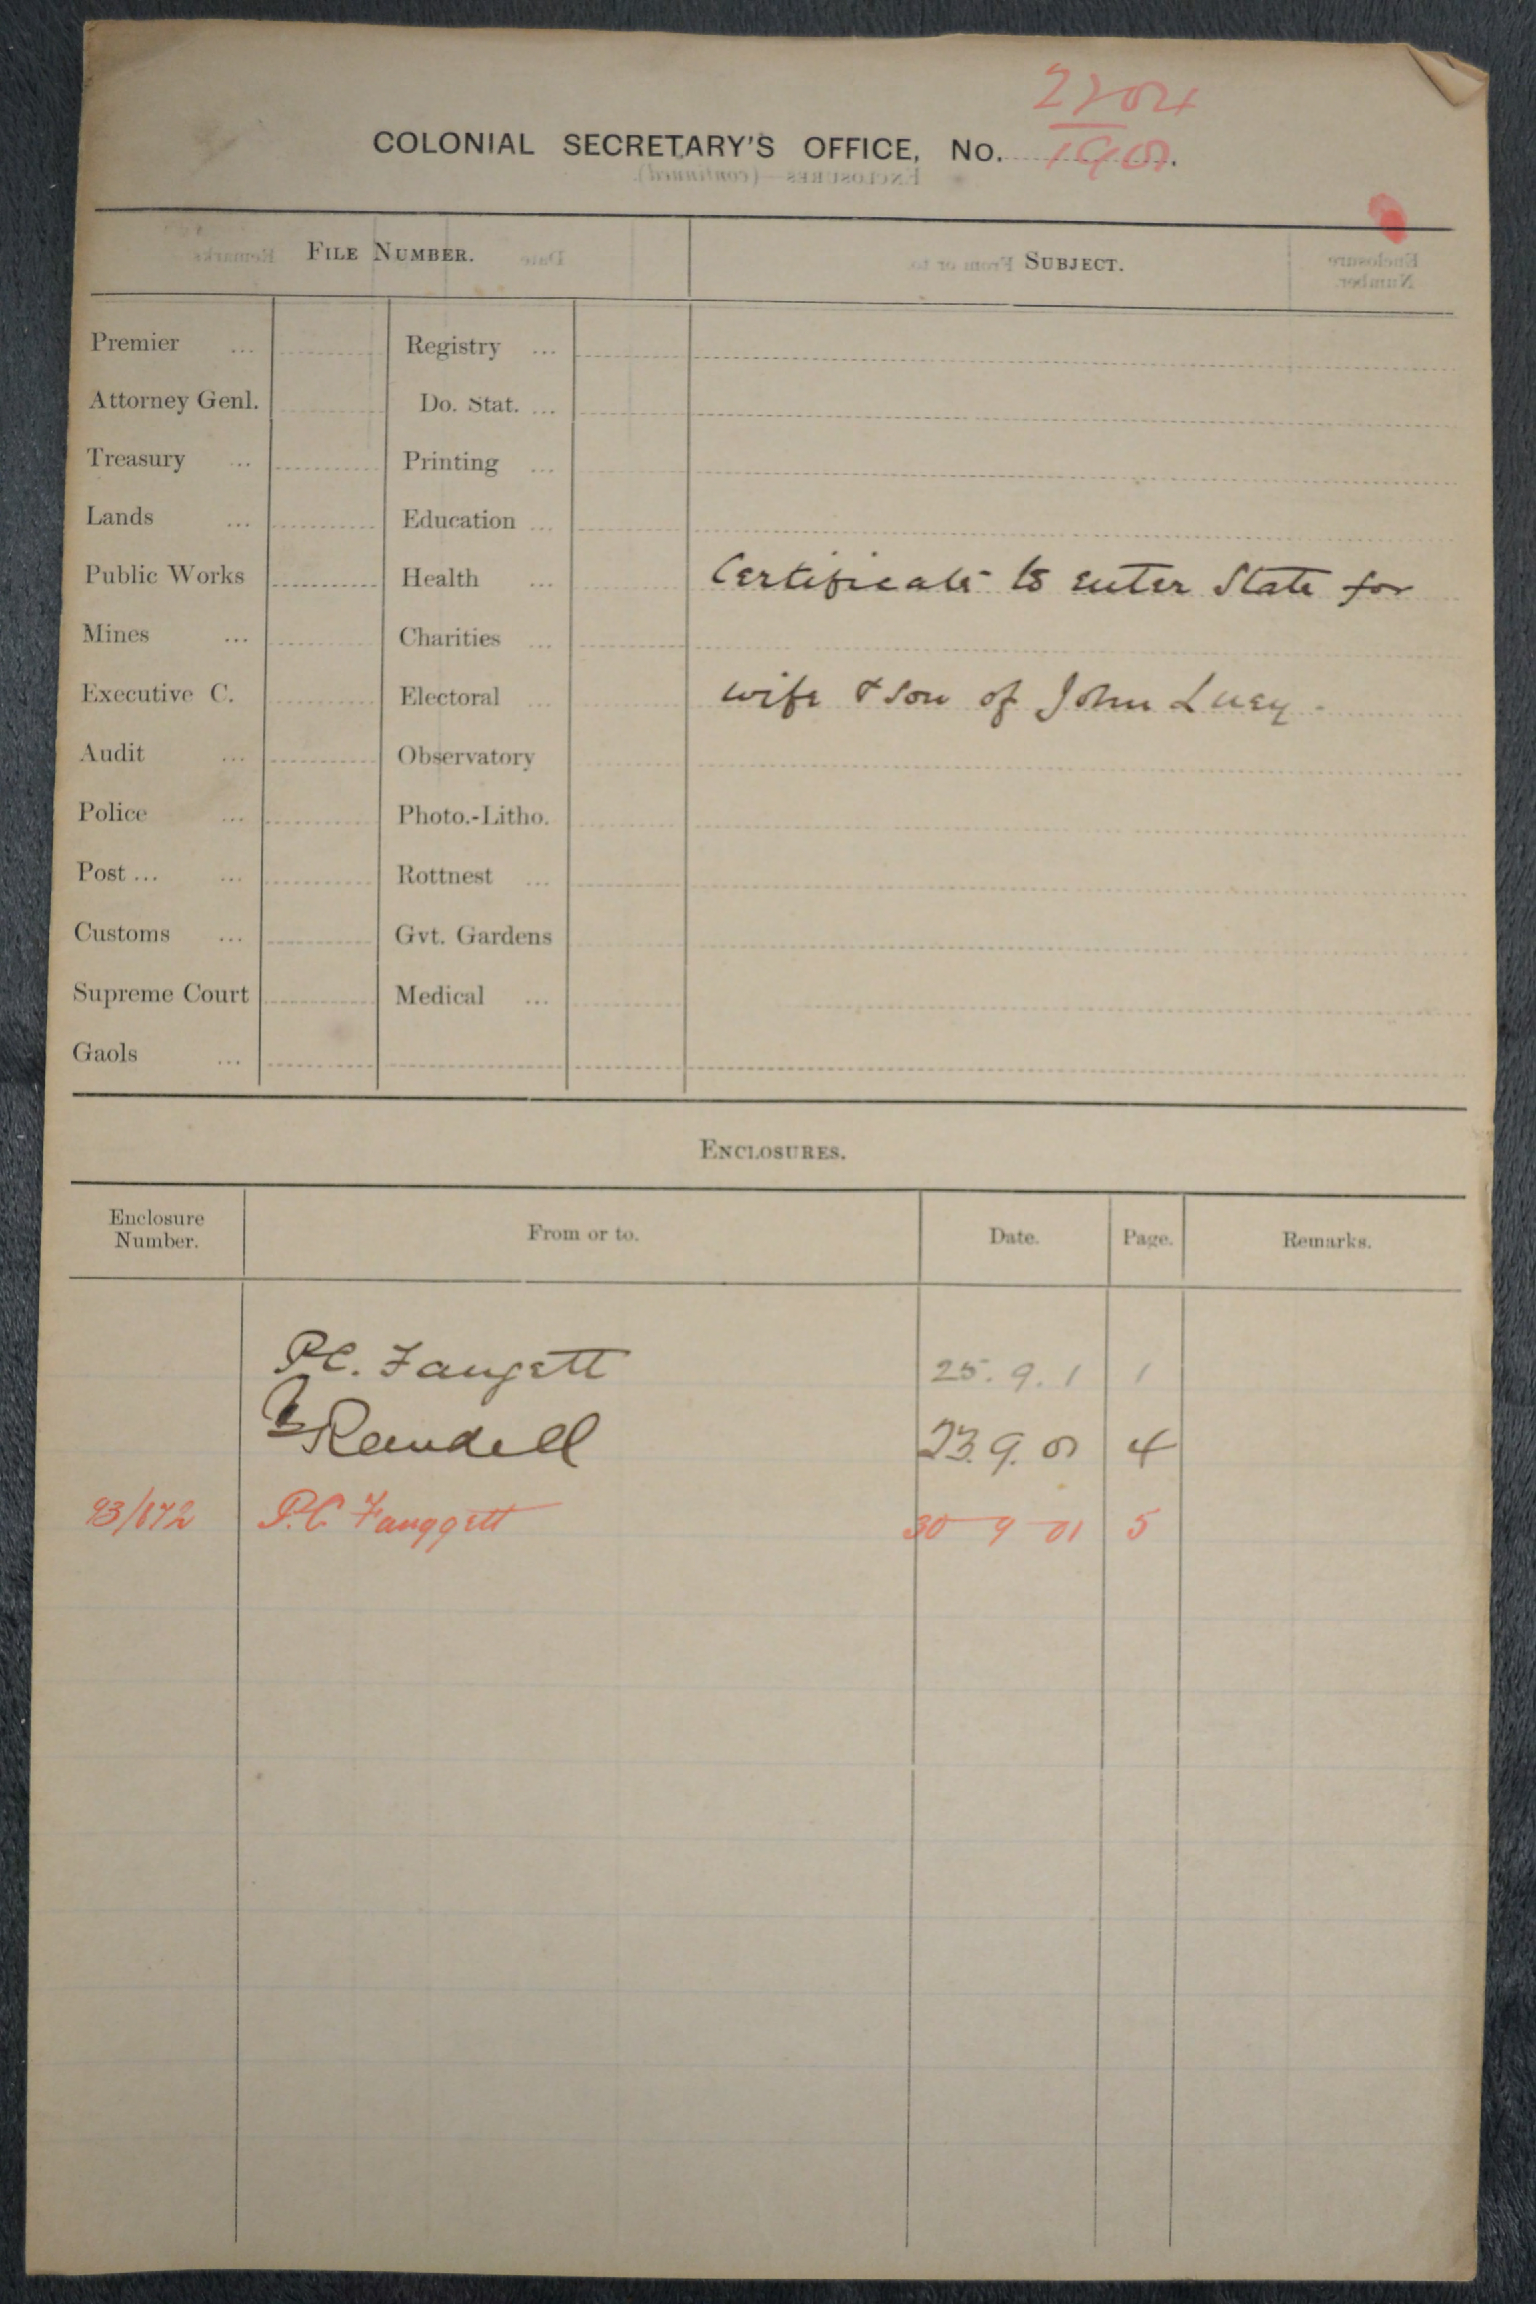 2204
COLONIAL SECRETARY'S OFFICE, No. 1901.
FILE NUMBER. SUBJECT.
Premier ... Registry ...
Attorney Genl. Do. Stat. ...
Treasury ... Printing ...
Lands ... Education ...
Public Works Health ... Certificate to enter State for
Mines ... Charities ...
Executive C. Electoral ... wife & son of John Lucy.
Audit ... Observatory
Police ... Photo.-Litho.
Post ... ... Rottnest ...
Customs ... Gvt. Gardens
Supreme Court Medical ...
Gaols ...
ENCLOSURES.
Enclosure Number. From or to. Date. Page. Remarks.
P.C. Faugett 25.9.1 1
Randell 23.9.01 4
93/672 P.C. Fauggett 30-9-01 5